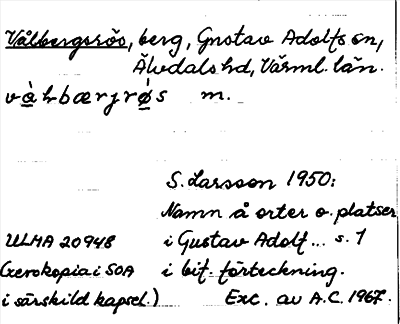 Vålbergsrös, berg, Gustav Adolfs sn,
Älvdals hd, Värml. län.
vàlbærjrǿs m.
S. Larsson 1950:
Namn å orter o. platser
ULMA 20948 i Gustav Adolf... s. 1
(Xerokopia i SOA i bif. förteckning.
i särskild kapsel.) Exc. av A.C. 1967.